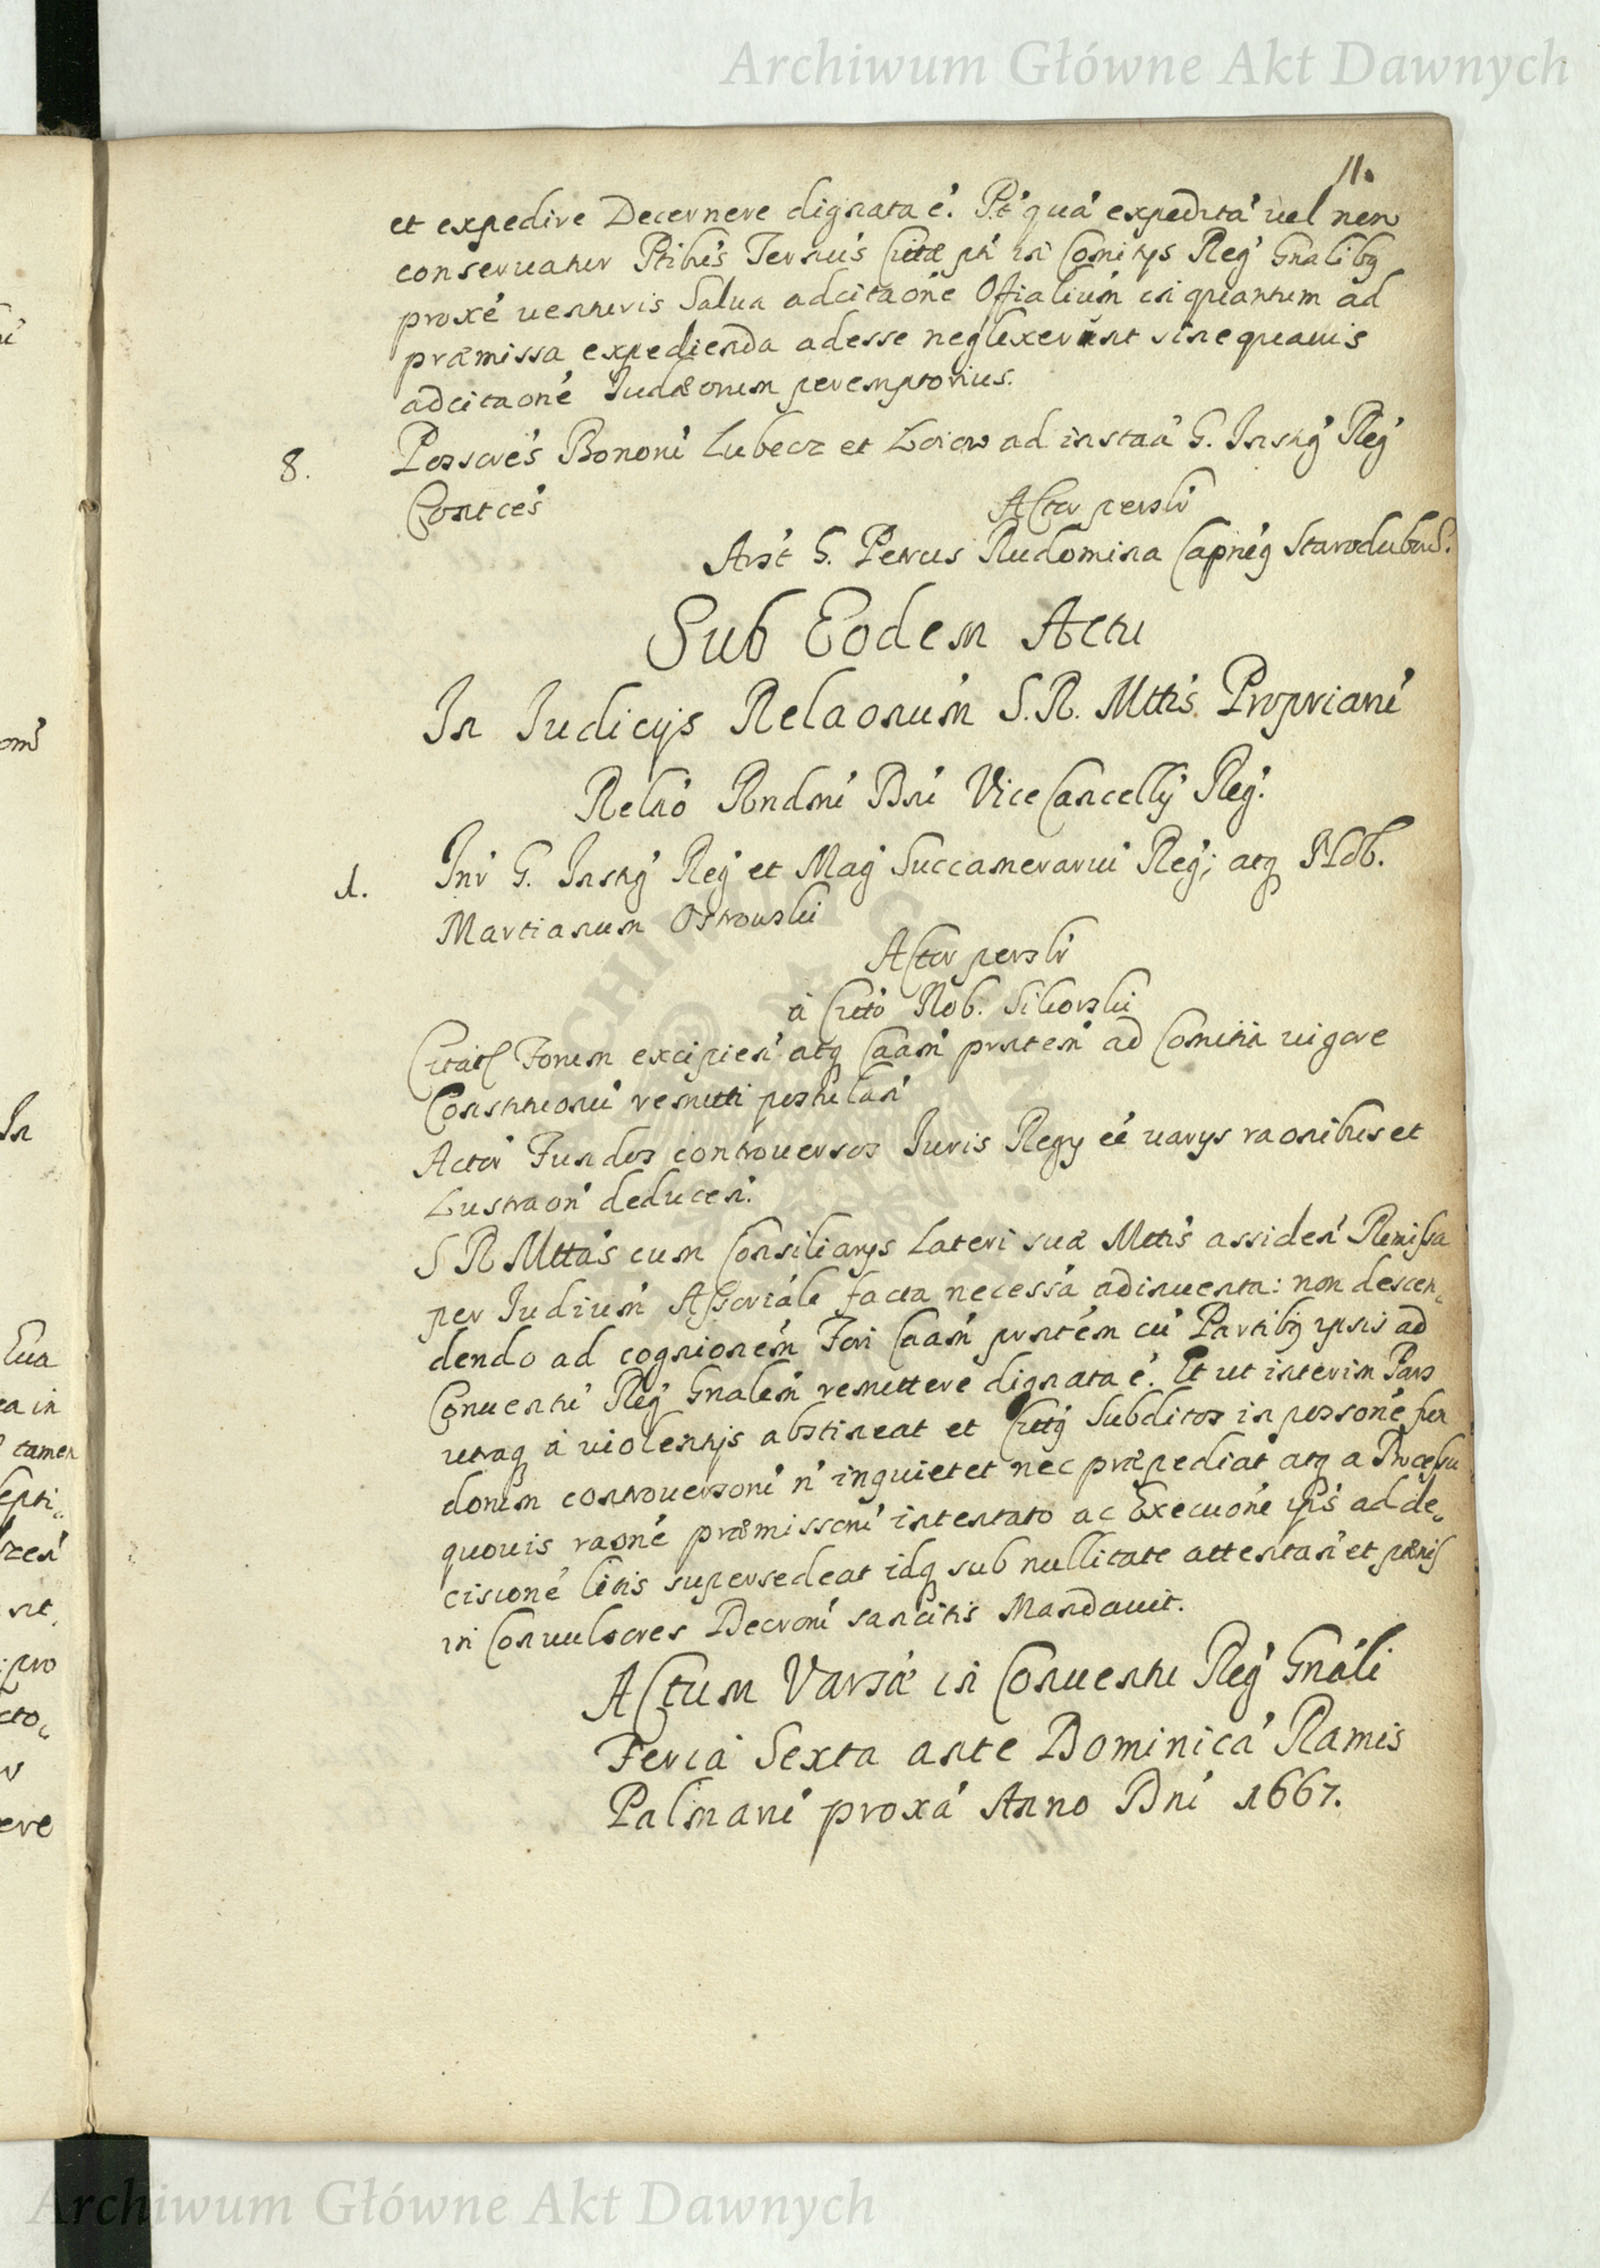 Archiwum Główne Akt Dawnych
11.
et expedire Decernere dignata é. Pt' quá expedita' uel non
conseruatur Ptibús Ternús Citae pt' in Comitijs Reg' Gnalibq
proxé uenturis Salua adcitaoné Offialiúm in quantum ad
praemissa expedienda adesse neglexerunt sine quauis
adcitaoné Iudaeorum peremptorius.
8. Possorés Bononí Lubecz et Loiow ad instaá G. Instig' Reg'
Contces'
Actor persli'
Arst' G. Petrus Rudomina Capneg Starodubow.
Sub Eodem Actu
In Iudicijs Relaonúm S. R. Mttis Proprianí
Relaó Rndmí Dní ViceCancellij Reg'.
1. Inr G. Instig' Reg' et Mag' Succamerarui Reg'; atq Nob.
Martianum Ostrowski
Actor persli'
á Citó Nob. Sikorski
Citats Forum excipien' atq Caam' pnrtem' ad Comitia uigore
Constituonú remitti postulan'
Actor Fundos controuersos Iuris Regij eé uarijs raonibus et
Lustraon' deducen'.
S R Mttás cum Consiliarijs Lateri suae Mttis assiden' Remissa
per Iudiúm Assoriále facta necessá adinuenta: non descen-
dendo ad cognioném Fori Caám pnrtém cú Partibq ipsis ad
Conuentú Reg' Gnalém remittere dignata é. Et ut interim Pars
utraq á violentijs abstineat et Citg' Subditos in possoné fun
dorum controuersoní n' inquietet nec praepediat atq a Processu
quouis raoné praemissoní intentato ac Execuoné ipús ad de-
cisioné litis supersedeat idq sub nullitate attentan' et paenis
in Conuulsores Decroní sancitis Mandauit.
Actum Varsae in Conuentu Reg' Gnáli
Feria Sexta ante Dominicá Ramis
Palmarí proxá Anno Dní 1667.
Archiwum Główne Akt Dawnych